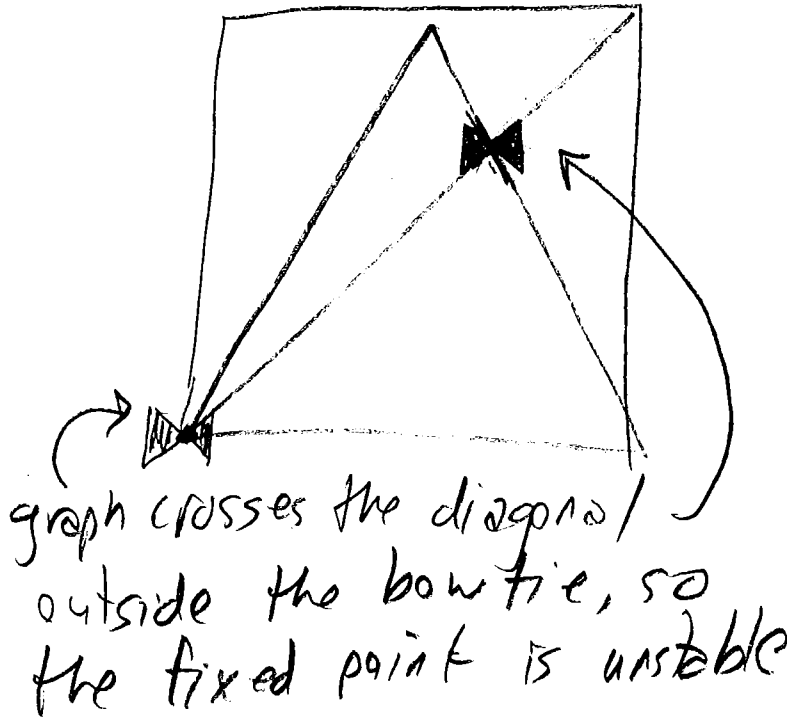 graph crosses the diagonal
outside the bowtie, so
the fixed point is unstable